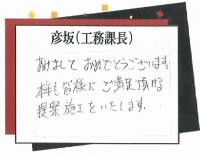 彦坂（工務課長）
あけまして おめでとうございます。
本年も皆様に ご満足頂ける
提案 施工をいたします。